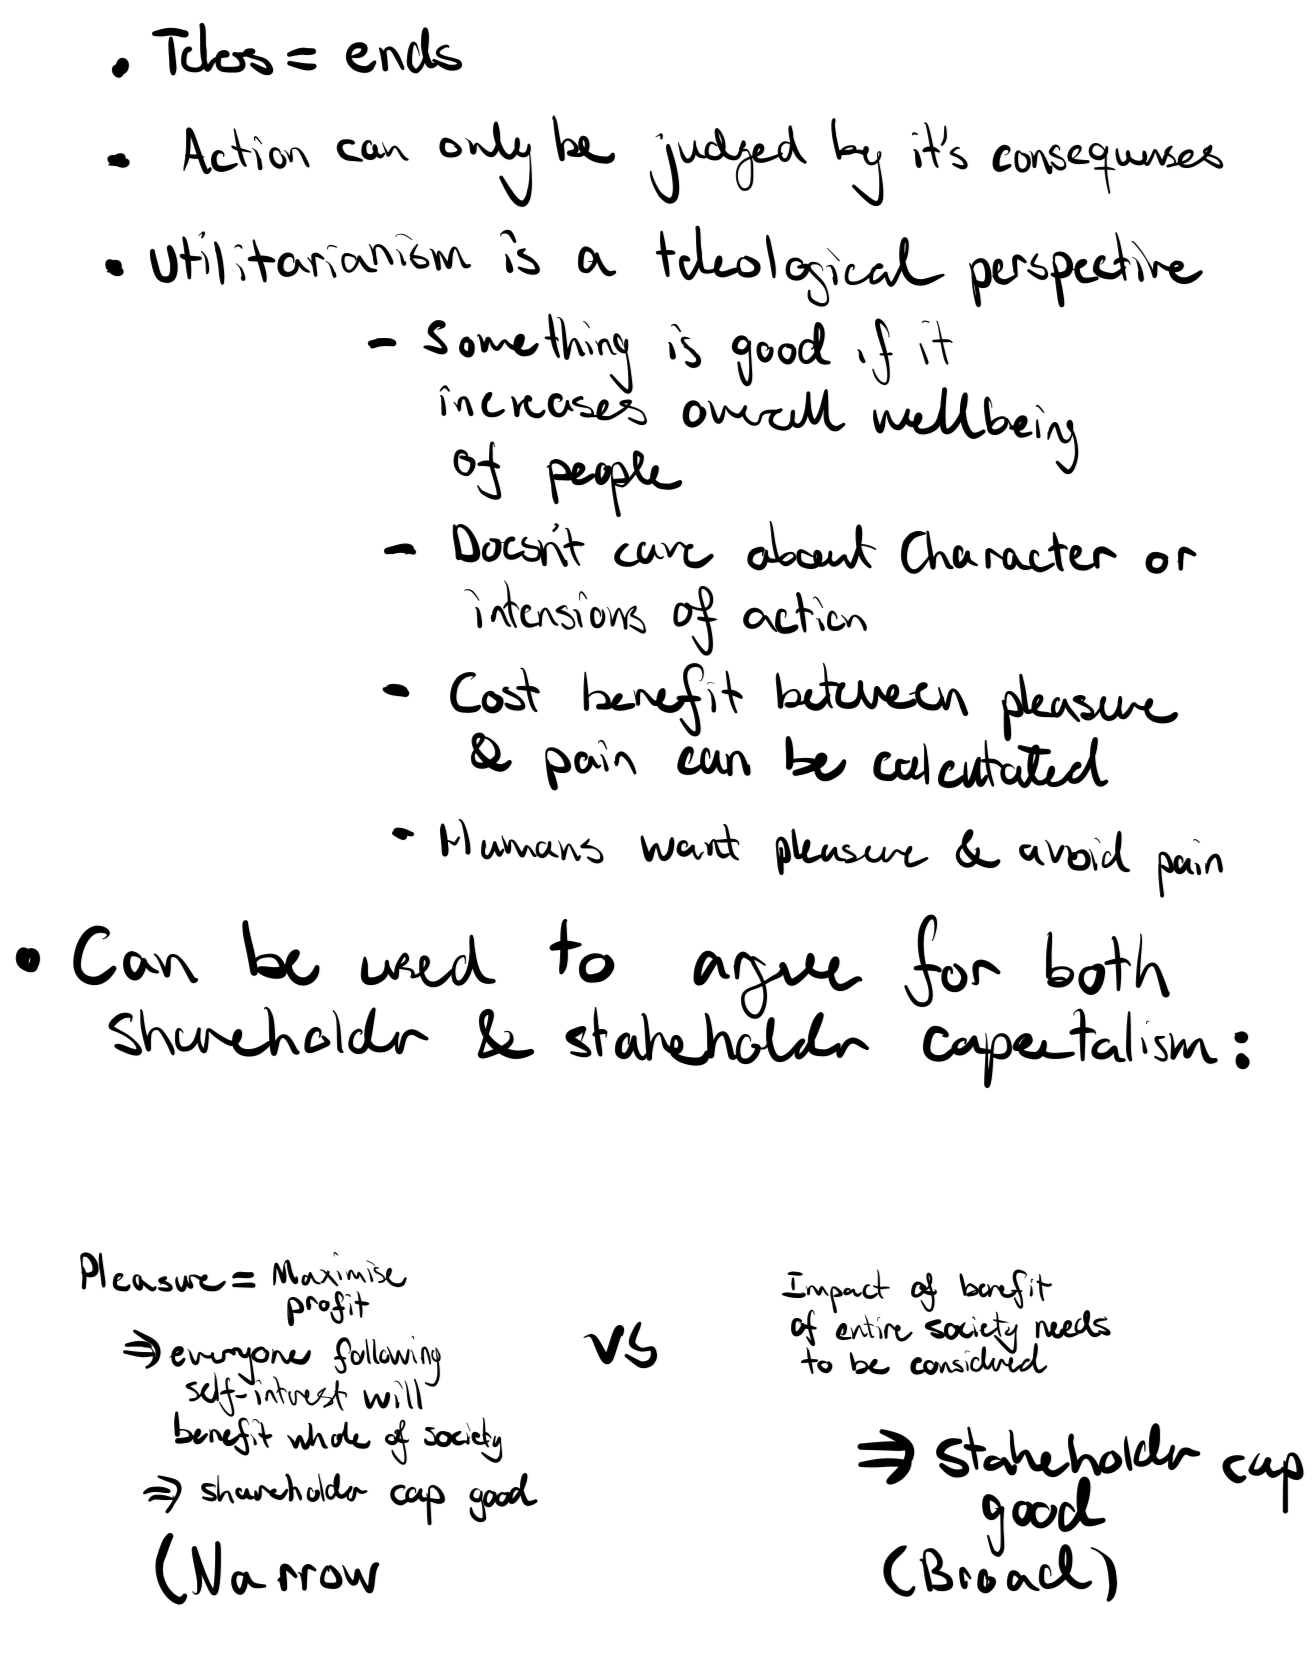 • Telos = ends
- Action can only be judged by it's consequenses
• Utilitarianism is a teleological perspective
- Something is good if it
increases overall wellbeing
of people
- Doesn't care about Character or
intensions of action
- Cost benefit between pleasure
& pain can be calculated
- Humans want pleasure & avoid pain
• Can be used to argue for both
shareholder & stakeholder capeitalism:
Pleasure = Maximise
profit
⇒ everyone following
self-interest will
benefit whole of society
⇒ shareholder cap good
(Narrow
VS
Impact of benefit
of entire society needs
to be considered
⇒ stakeholder cap
good
(Broad)